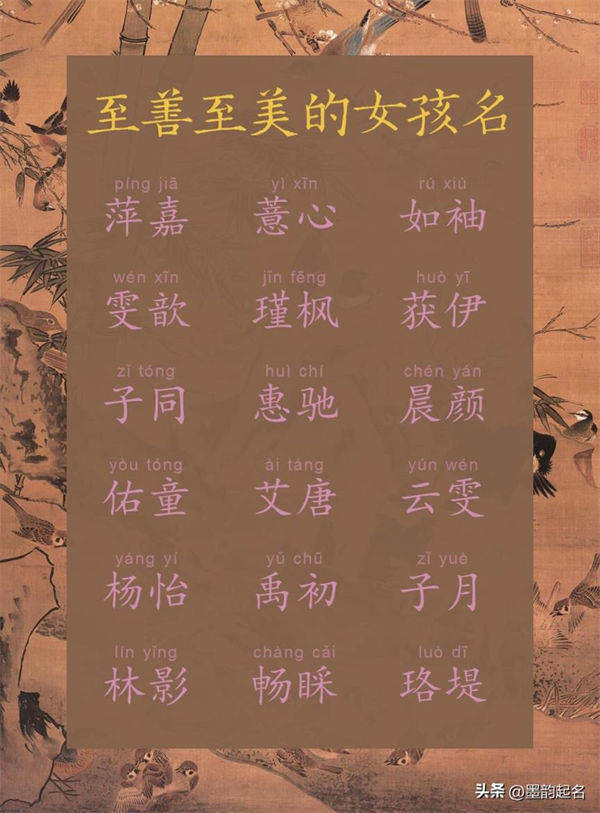 至善至美的女孩名
píng jiā yì xīn rú xiù
萍嘉 薏心 如袖
wén xīn jǐn fēng huò yī
雯歆 瑾枫 获伊
zǐ tóng huì chí chén yán
子同 惠驰 晨颜
yòu tóng ài táng yún wén
佑童 艾唐 云雯
yáng yí yǔ chū zǐ yuè
杨怡 禹初 子月
lín yǐng chàng cǎi luò dī
林影 畅睬 珞堤
头条 @墨韵起名